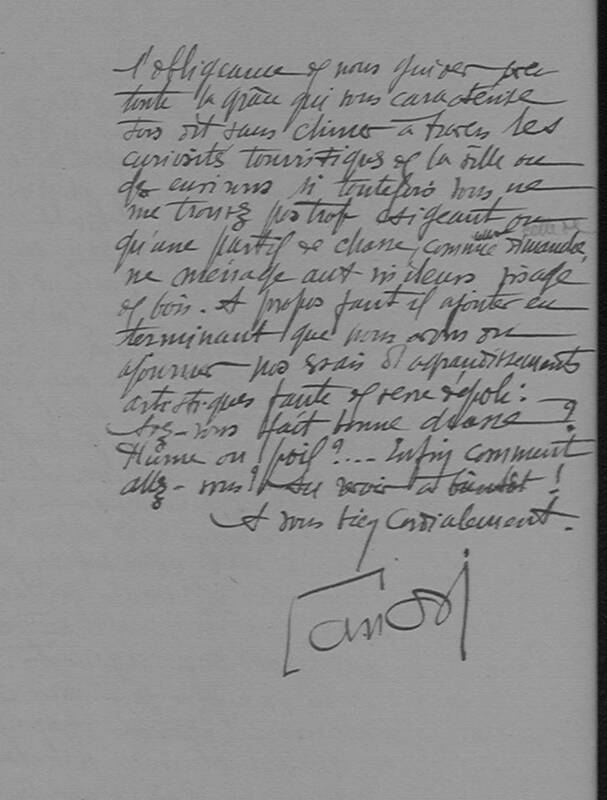 l'obligeance de nous guider avec
toute la grâce qui vous caractérise
sois dit sans climer à travers les
curiosités touristiques de la ville ou
des environs si toutefois vous ne
me trouvez pas trop exigeant ou
qu'une partie de chasse, comme celle de Dimanche,
ne ménage aux visiteurs visage
de bois. A propos faut il ajouter en
terminant que nous avons du
ajourner nos essais d'agrandissements
artistiques faute de verre dépoli:
Avez-vous fait bonne chasse?
Plume ou poil?... Enfin comment
allez-vous? Au revoir a bientôt!
A vous bien Cordialement.